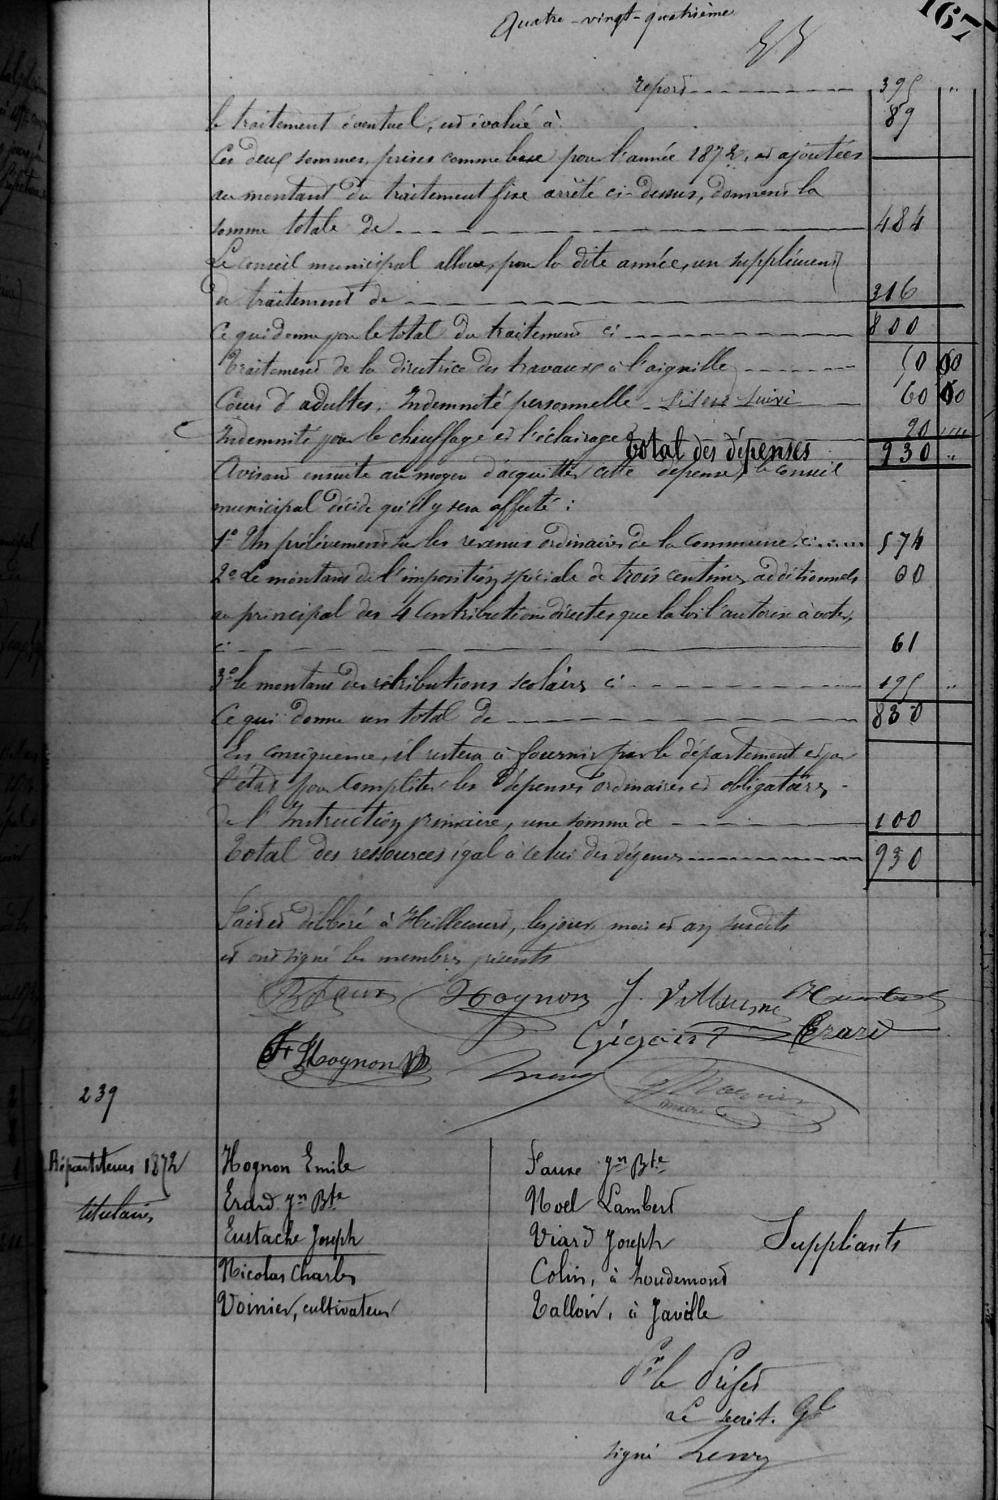 Quatre-vingt-quatrième
167
report 395 "
le traitement éventuel, est évalué à 89
Ces deux sommes, prises comme base pour l'année 1872, et ajoutées
au montant du traitement fixe arrêté ci-dessus, donnent la
somme totale de 484
Le Conseil municipal alloue, pour la dite année, un supplément
de traitement de 316
Ce qui donne pour le total du traitement ci 800
Traitement de la directrice des travaux à l'aiguille 50 00
Cours d'adultes, Indemnité personnelle 60 00
Indemnité pour le chauffage et l'éclairage 20
total des dépenses 930 "
Avisant ensuite au moyen d'acquitter cette dépense, le conseil
municipal décide qu'il y sera affecté :
1° Un prélèvement sur les revenus ordinaires de la Commune ci 574
2° Le montant de l'imposition spéciale de trois centimes additionnels 00
au principal des 4 Contributions directes que la loi l'autorise à voter,
ci 61
3° le montant des rétributions scolaires ci 195 "
Ce qui donne un total de 830
En conséquence, il restera à fournir par le département et par
l'état pour compléter les dépenses ordinaires et obligatoires
de l'Instruction primaire, une somme de 100
Total des ressources égal à celui des dépenses 930
Fait et délibéré à Heillecourt, les jour, mois et an susdits
et ont signé les membres présents
Hognon J. Villaume
Gégoirt Erard
F Hognon
239
Répartiteurs 1872
titulaires
Hognon Emile
Erard Jn Bte
Eustache Joseph
Nicolas Charles
Voinier, cultivateur
Faure Jn Bte
Noel Lambert
Viard Joseph
Colin, à houdemont
Talloir, à Jarville
Suppléants
Pr le Préfet
Le secrét. Gl
signé